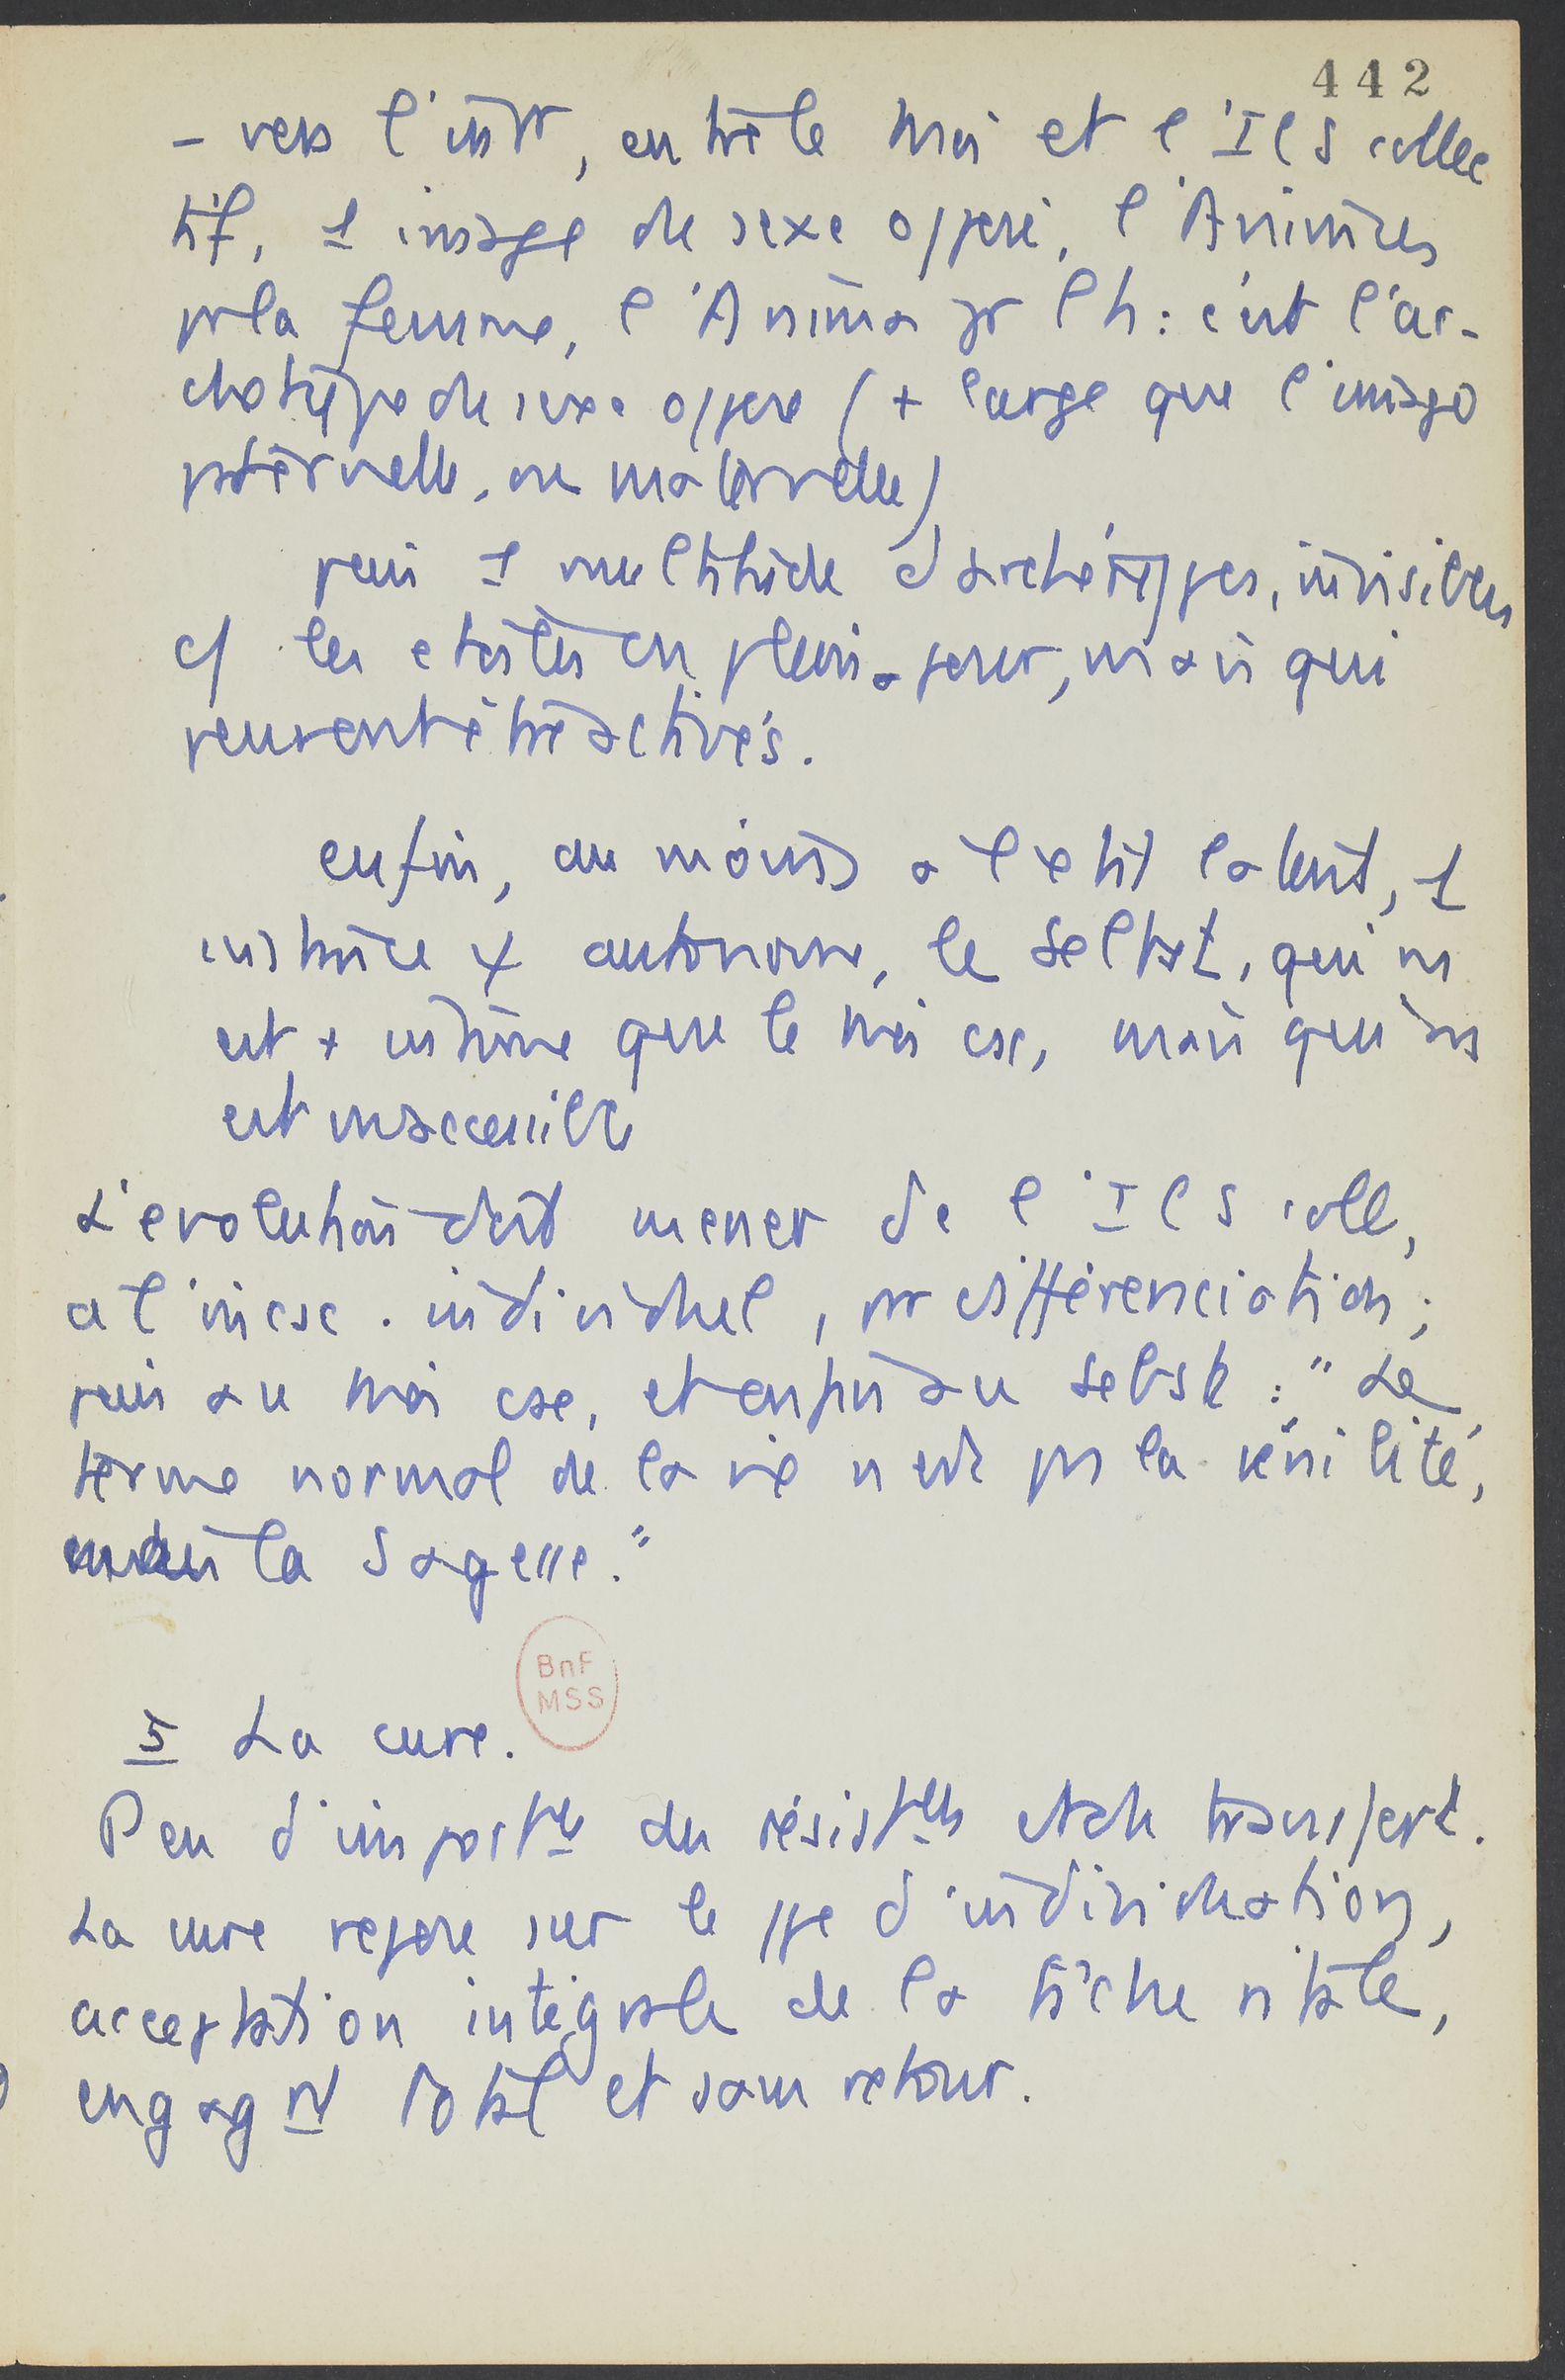 442
- vers l'intr, entre le moi et l'ICS collec
tif, 1 image de sexe opposé, l'Animus
pr la femme, l'Anima pr l h : c'est l'ar-
chétype de sexe opposé (+ large que l'imago
paternelle, ou maternelle)
puis 1 multitude d'archétypes, invisibles
c/ les étoiles en plein jour, mais qui
peuvent être activés.
enfin, au moins à l'état latent, 1
instance autonome, le Selbst, qui ns
est + intime que le moi csc, mais qui ns
est inaccessible
L'évolution doit mener de l'ICS coll,
à l'incsc. individuel, pr différenciation;
puis au moi csc, et enfin au Selbst : "Le
terme normal de la vie n'est ps la sénilité,
mais la sagesse."
5 La cure.
Peu d'importce des résistces et du transfert.
La cure repose sur le ppe d'individuation,
acceptation intégrale de la tâche vitale,
engagnt total et sans retour.
BnF
MSS